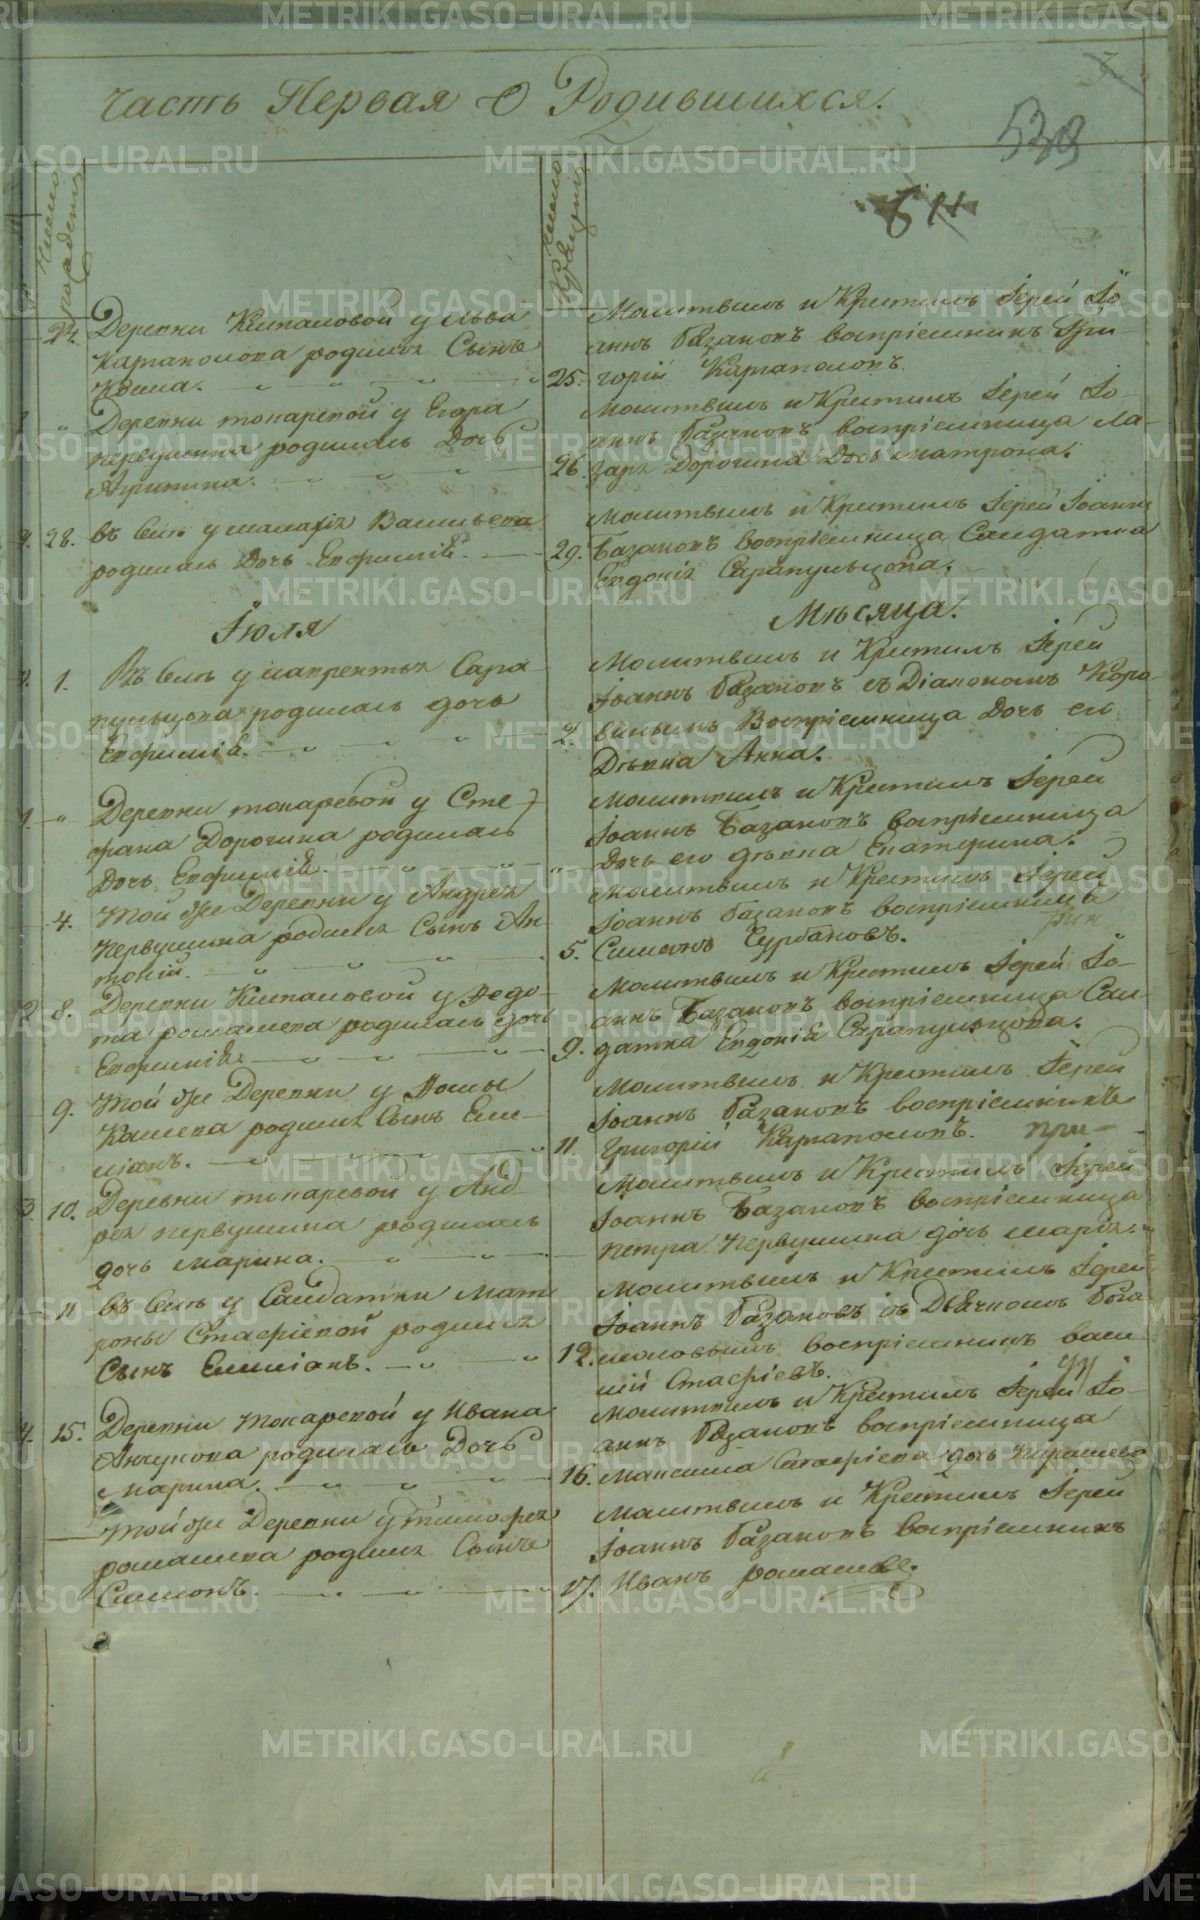 Часть Первая О Родившихся.
539
Число рождения
Число крещения
24. Деревни Кипаловой у Льва
Картаполова родился Сынъ
25.
Молитвилъ и Крестилъ Іерей Іо
аннъ Базановъ воспріемникъ Гри-
горій Картаполовъ.
Деревни токаревой у Егора
первушина родилась Дочь
Агрипина.
26.
Молитвилъ и Крестилъ Іерей Іо-
аннъ Базановъ воспріемница Ла-
заря Дорогина Дочь матрона.
28. въ селѣ у малафія Васильева
родилась Дочь Евфимія.
29.
Молитвилъ и Крестилъ Іерей Іоаннъ
Базановъ воспріемница Салдатка
Евдокія Сарапульцова.
Іюля Мѣсяца.
1. Въ селѣ у лаврентья Сара-
пульцова родилась дочь
Евфимія.
2.
Молитвилъ и Крестилъ Іерей
Іоаннъ Базановъ съ Діакономъ Коро-
винымъ Воспріемница Дочь его
Дѣвка Анна.
Деревни токаревой у Сте-
фана Дорогина родилась
Дочь Евфимія.
Молитвилъ и Крестилъ Іерей
Іоаннъ Базановъ воспріемница
Дочь его дѣвка Екатерина.
4. Той же Деревни у Андрея
первушина родился Сынъ Ан-
тоній.
5.
Молитвилъ и Крестилъ Іерей
Іоаннъ Базановъ воспріемница
8. Деревни Кипаловой у Федо-
та ромашева родилась дочь
Евфимія.
9.
Молитвилъ и Крестилъ Іерей Іо-
аннъ Базановъ воспріемница Сал-
датка Евдокія Сарапульцова.
9. Той же Деревни у Фомы
родился Сынъ Еми-
ліанъ.
11.
Молитвилъ и Крестилъ Іерей
Іоаннъ Базановъ воспріемникъ
Григорій Картаполовъ.
10. Деревни токаревой у Анд-
рея первушина родилась
дочь марина.
Молитвилъ и Крестилъ Іерей
Іоаннъ Базановъ воспріемница
петра первушина дочь марья.
11 въ селѣ у Салдатки Мат-
роны Стафіевой родился
Сынъ Емиліанъ.
12.
Молитвилъ и Крестилъ Іерей
Іоаннъ Базановъ съ Дьячкомъ Бога
моловымъ воспріемникъ васи
лій Стафіевъ.
15. Деревни Токаревой у Ивана
Анчукова родилась Дочь
марина.
16.
Молитвилъ и Крестилъ Іерей Іо-
аннъ Базановъ воспріемница
Максима Стафіева дочь
Той же Деревни у тимофея
ромашева родился Сынъ
Симонъ.
17.
Молитвилъ и Крестилъ Іерей
Іоаннъ Базановъ воспріемникъ
Иванъ ромашевъ.
METRIKI.GASO-URAL.RU